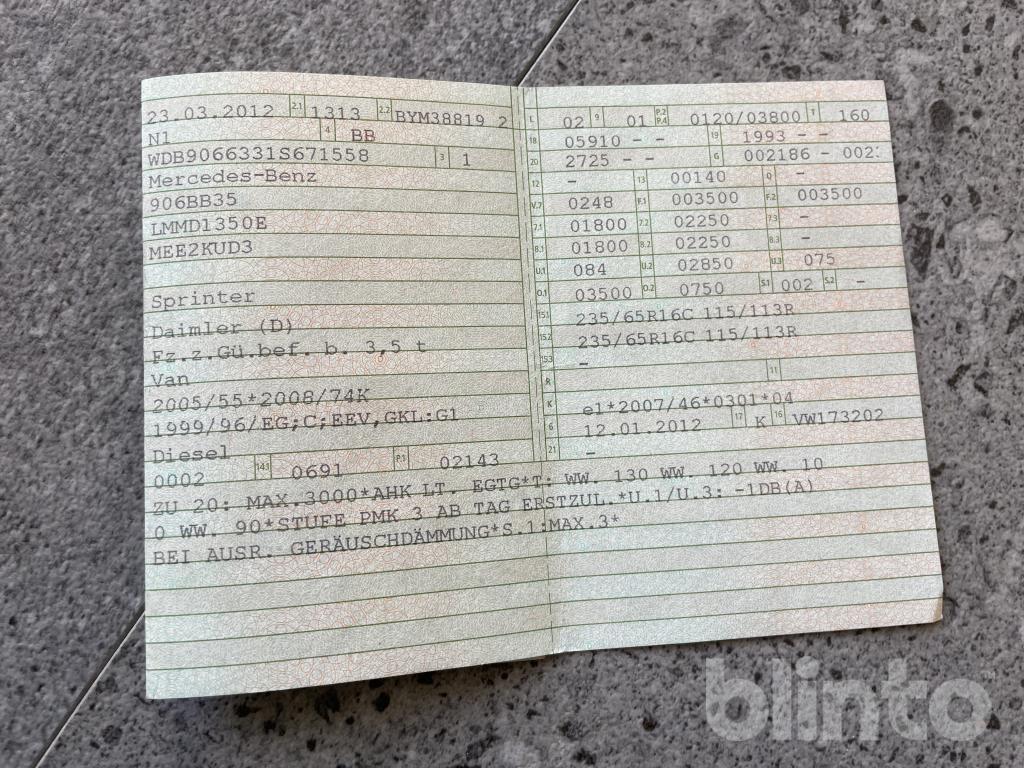 23.03.2012 2.1 1313 2.2 BYM38819 2
N1 4 BB
WDB9066331S671558 3 1
Mercedes-Benz
906BB35
LMMD1350E
MEE2KUD3
Sprinter
Daimler (D)
Fz.z.Gü.bef. b. 3,5 t
Van
2005/55*2008/74K
1999/96/EG;C;EEV,GKL:G1
Diesel
0002 14.1 0691 P.1 02143
L 02 9 01 P.2 P.4 0120/03800 T 160
18 05910 - - 19 1993 - -
20 2725 - - G 002186 - 002
12 - 13 00140 Q -
V.7 0248 F.1 003500 F.2 003500
7.1 01800 7.2 02250 7.3 -
8.1 01800 8.2 02250 8.3 -
U.1 084 U.2 02850 U.3 075
O.1 03500 O.2 0750 S.1 002 S.2 -
15.1 235/65R16C 115/113R
15.2 235/65R16C 115/113R
15.3 -
R 11
K e1*2007/46*0301*04
6 12.01.2012 17 K 16 VW173202
21 -
ZU 20: MAX.3000*AHK LT. EGTG*T: WW. 130 WW. 120 WW. 10
0 WW. 90*STUFE PMK 3 AB TAG ERSTZUL.*U.1/U.3: -1DB(A)
BEI AUSR. GERÄUSCHDÄMMUNG*S.1:MAX.3*
blinto